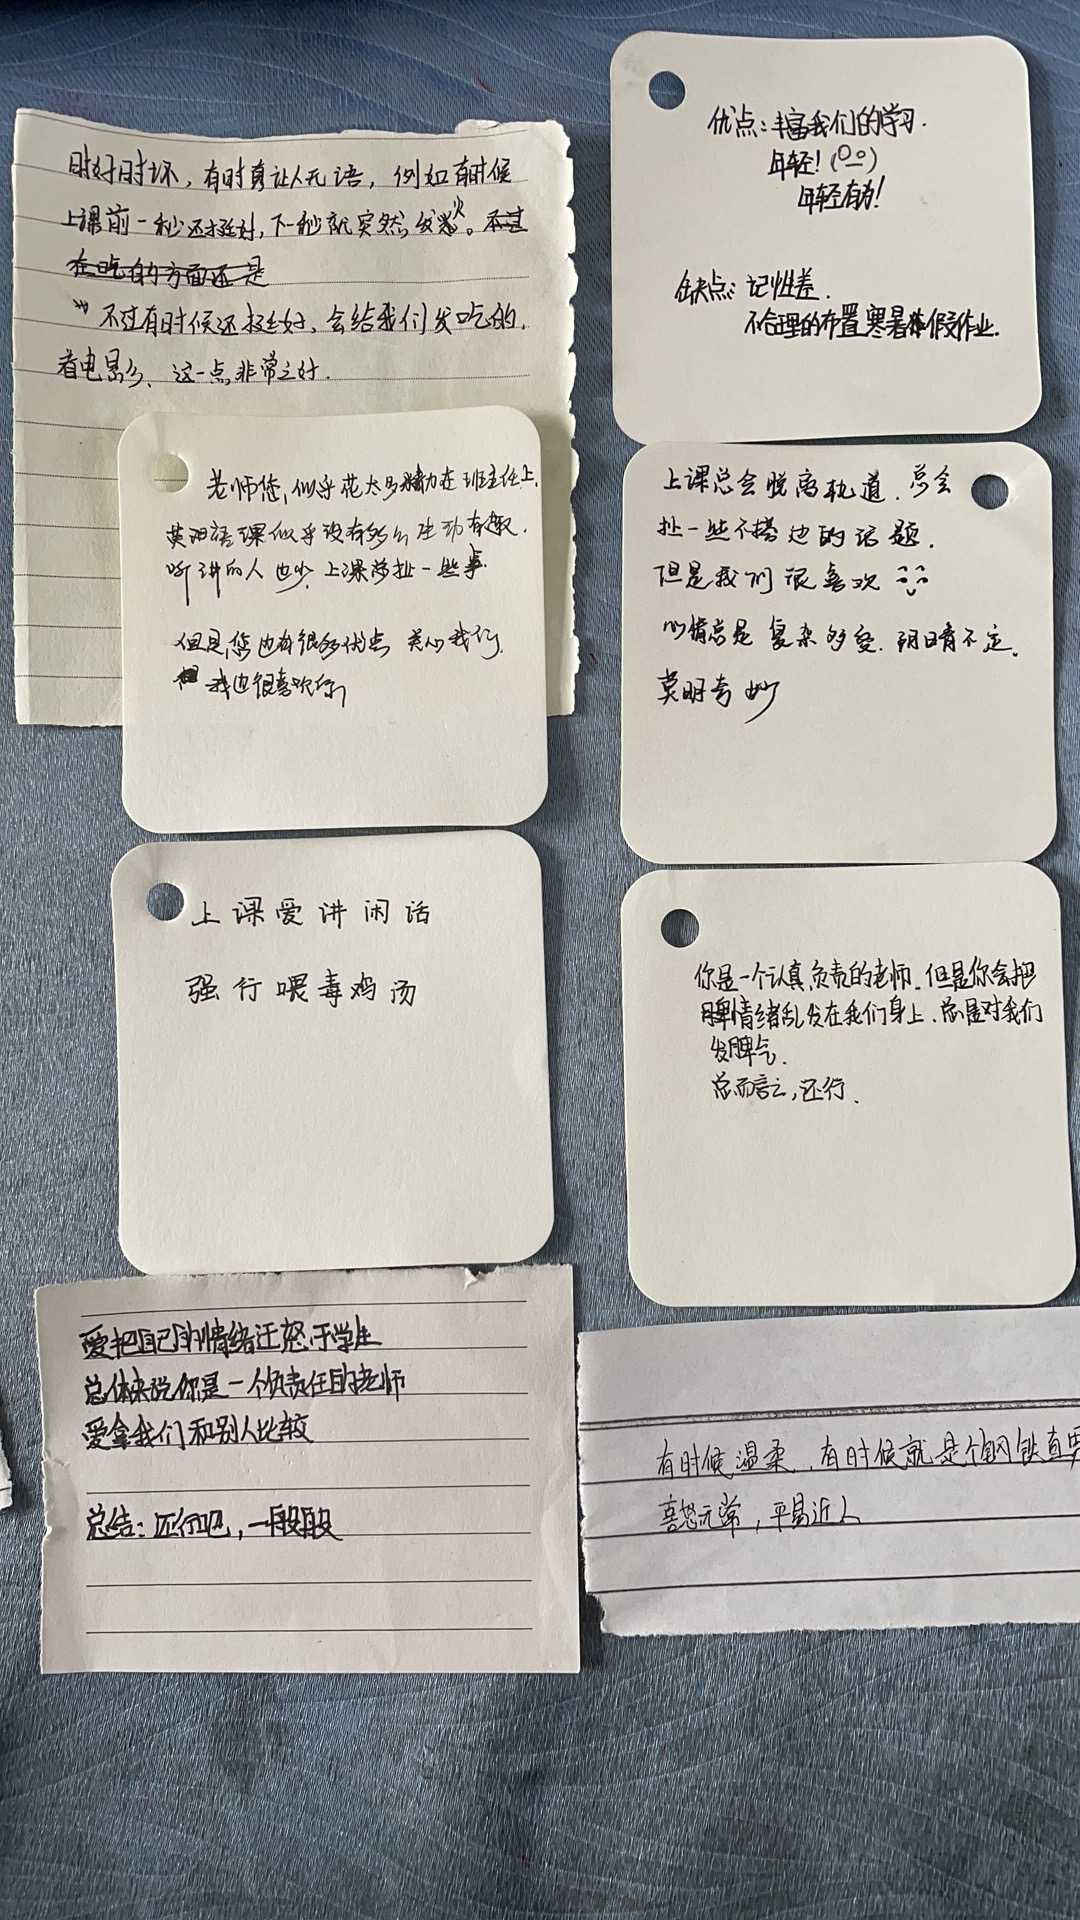 时好时坏，有时真让人无语，例如有时候
上课前一秒还挺好，下一秒就突然发火。不过
在吃的方面还是
不过有时候还挺好，会给我们发吃的，
看电影、这一点非常之好.
优点：丰富我们的学习.
年轻！
年轻有为！
缺点：记性差.
不合理的布置寒暑假作业.
老师您，似乎花太多精力在班主任上，
英语课似乎没有多么生动有趣.
听讲的人也少，上课常扯一些事.
但是，您也有很多优点 关心我们，
我也很喜欢你
上课总会脱离轨道．总会
扯一些不搭边的话题．
但是我们很喜欢
心情总是复杂多变．阴晴不定。
莫明奇妙
上课爱讲闲话
强行喂毒鸡汤
你是一个认真负责的老师．但是你会把
情绪乱发在我们身上．总是对我们
发脾气．
总而言之，还行．
爱把自己的情绪迁怒于学生
总体来说你是一个负责任的老师
爱拿我们和别人比较
总结：还行吧，一般般
有时候温柔，有时候就是个钢铁直男
喜怒无常，平易近人